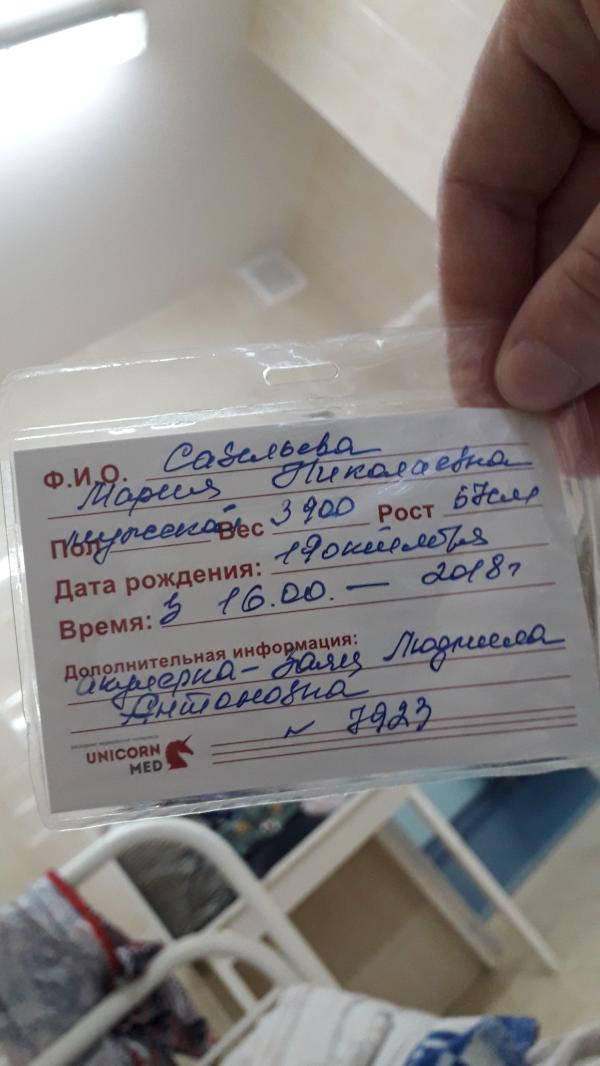 Ф.И.О. Савельева
Мария Николаевна
Пол мужской Вес 3900 Рост 57см
Дата рождения: 19 октября
Время: в 16.00. — 2018г
Дополнительная информация:
акушерка - Заяц Людмила
Антоновна
N 7923
UNICORN
MED